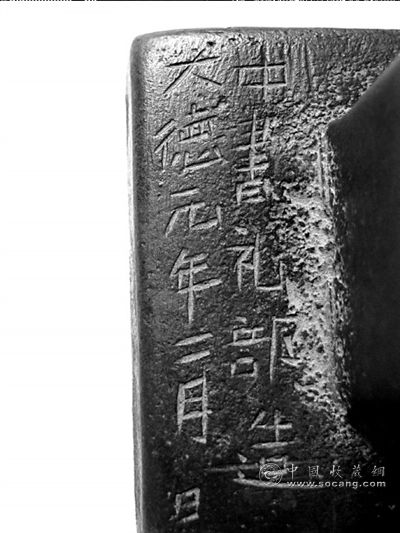 中書礼部造
大德元年二月 日
中国收藏網
www.socang.com